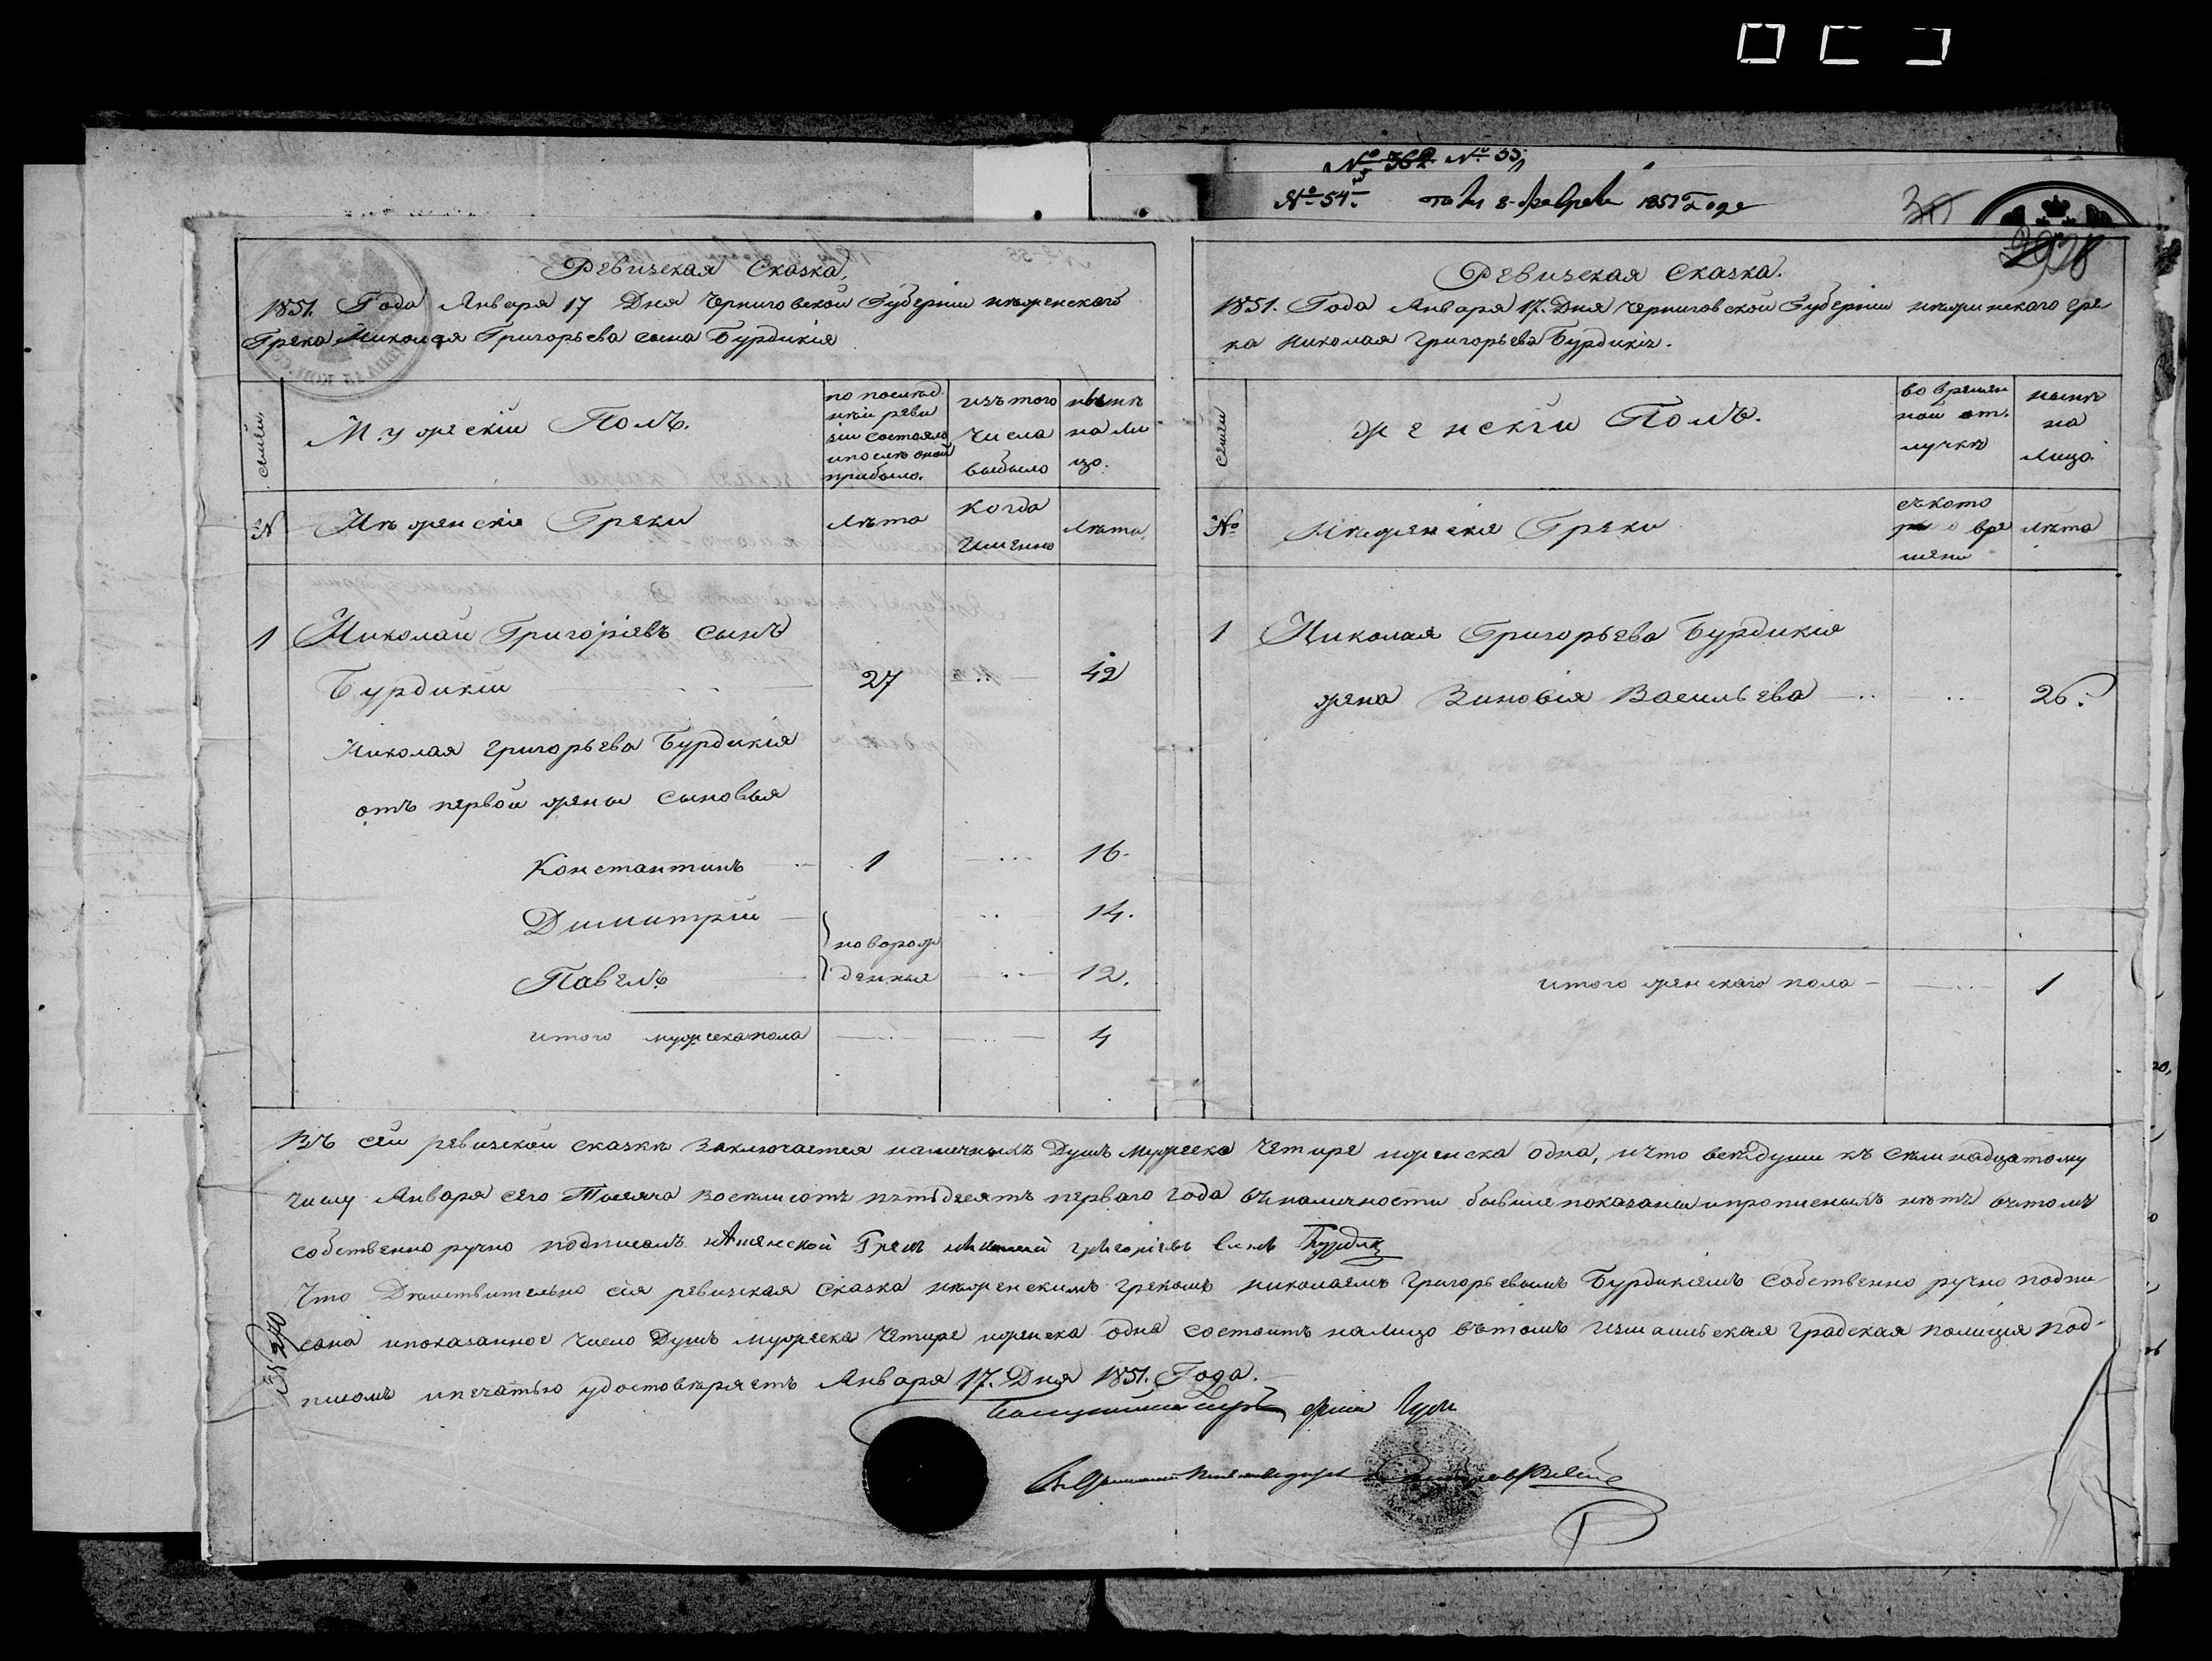 № 362 № 55
№ 54. 8 Февраля 1851 Года
Ревизская Сказка.
1851. Года Января 17 Дня Черниговской Губерніи нѣженскаго
Грека Николая Григорьева сына Бурдикія
семьи
Мужескій Полъ.
по послѣд
ней реви
зіи состояло
и послѣ оной
прибыло.
изъ того
числа
выбыло
нынѣ
на ли
цо.
№
Нѣженскіе Греки
Лѣта
Когда
Именно
Лѣта.
1 Николай Григоріевъ сынъ
Бурдикій 27 42
Николая Григорьева Бурдикія
отъ первой жены сыновья
Константинъ 1 16.
Димитрій 14.
новорож
денныя
Павелъ 12.
итого мужеска пола 4
Ревизская Сказка.
1851. Года Января 17. Дня Черниговской Губерніи нѣжинскаго гре
ка Николая Григорьева Бурдикія.
семьи
Женскій Полъ.
во времен
ной от
лучкѣ
нынѣ
на
Лицо
№
Нѣженскія Греки
съ кото
раго вре
мени
лѣта
1 Николая Григорьева Бурдикія
жена Зиновія Васильева 26.
итого женскаго пола 1
Въ сей ревизской сказкѣ заключается наличныхъ Душъ мужеска четыре и женска одна, и что всѣ души къ семнадцатому
числу Января сего Тысяча восемсотъ пятдесятъ перваго года въ наличности бывшие показаны и прописныхъ нѣтъ въ томъ
собственно ручно подписалъ нѣженской Грекъ николай григоріевъ сынъ Бурдик
Что Действительно сія ревизская Сказка нѣженскимъ грекомъ николаемъ Григорьевымъ Бурдикіемъ собственно ручно подпи
сана и показанное число Душъ мужеска Четыре и женска одна состоитъ на лицо въ томъ измаильская градская полиція под-
писомъ и печатью удостовѣряетъ Января 17. Дня 1851. Года.